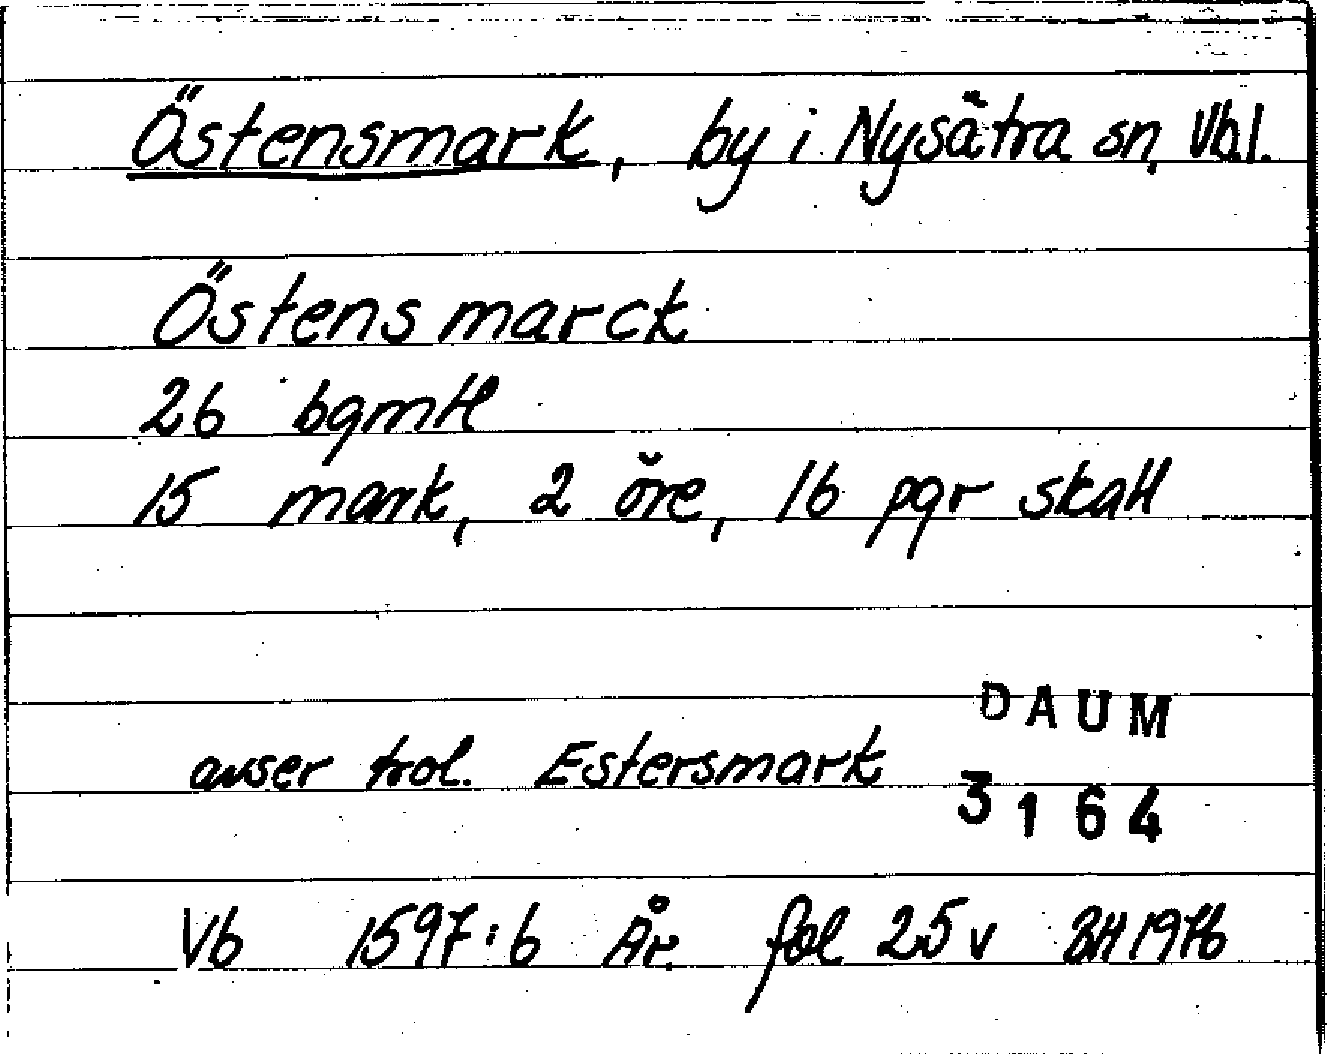 Östensmark, by i Nysätra sn, Vbl.
Östensmarck
26 bgmtl
15 mark, 2 öre, 16 pgr skatt
DAUM
avser trol. Estersmark
3164
Vb 1597:6 År fol 25v BH 1976